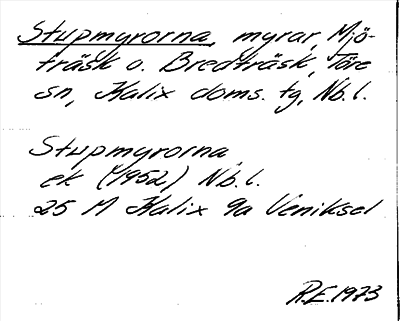 Stupmyrorna, myrar, Mjö-
träsk o. Bredträsk, Töre
sn, Kalix doms. tg, Nb. l.
Stupmyrorna,
ek (1952) Nb. l.
25 M Kalix 9a Veniksel
R.E. 1973